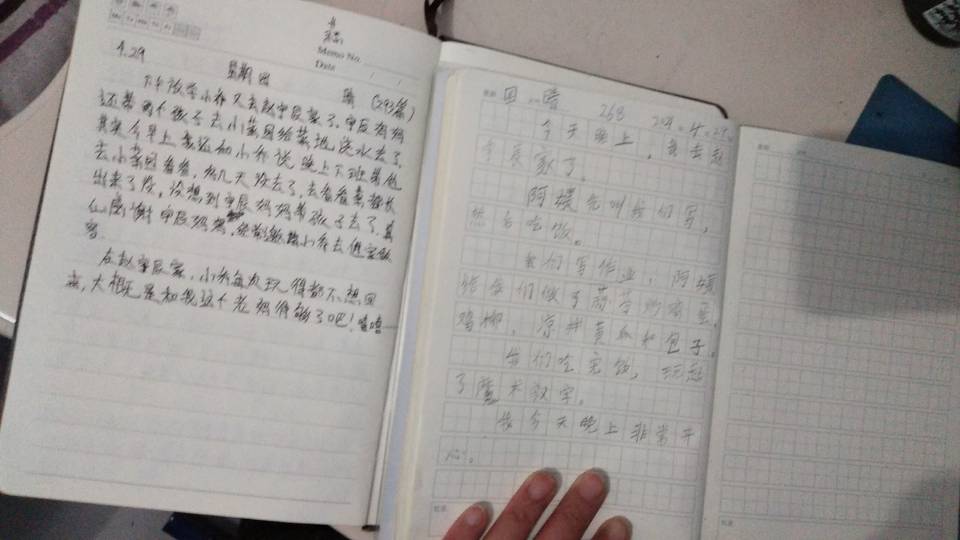 Memo No.
Date / /
4.29 星期四 晴 (293篇)
下午放学小乔又去赵宇辰家了,宇辰妈妈
还带两个孩子去小菜园给菜地浇水去了,
其实今早上我还和小乔说晚上下班带他
去小菜园看看,好几天没去了,去看看菜都长
出来了没,没想到宇辰妈妈带孩子去了,真
心感谢宇辰妈妈,经常邀小乔去他家做
客。
在赵宇辰家,小乔每次玩得都不想回
来,大概是和我这个老妈待够了吧!嘻嘻
四 晴 268 2021.4.29
今天晚上,我去赵
宇辰家了。
阿姨先叫我们写,
然后吃饭。
我们写作业,阿姨
给我们做了蒜苔炒鸡蛋,
鸡柳,凉拌黄瓜和包子。
我们吃完饭,玩起
了魔术汉字。
我今天晚上非常开
心。